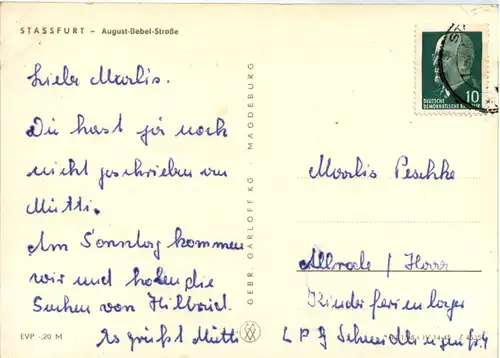 STASSFURT – August-Bebel-Straße
Liebe Marlis.
Du hast ja noch
nicht geschrieben an
Mutti.
Am Sonntag kommen
wir und holen die
Sachen von
Es grüßt Mutti
EVP -,20 M
GEBR. GARLOFF KG · MAGDEBURG
10
DEUTSCHE
DEMOKRATISCHE
Marlis Peschke
Allrode / Harz
Kinderferienlager
LPG